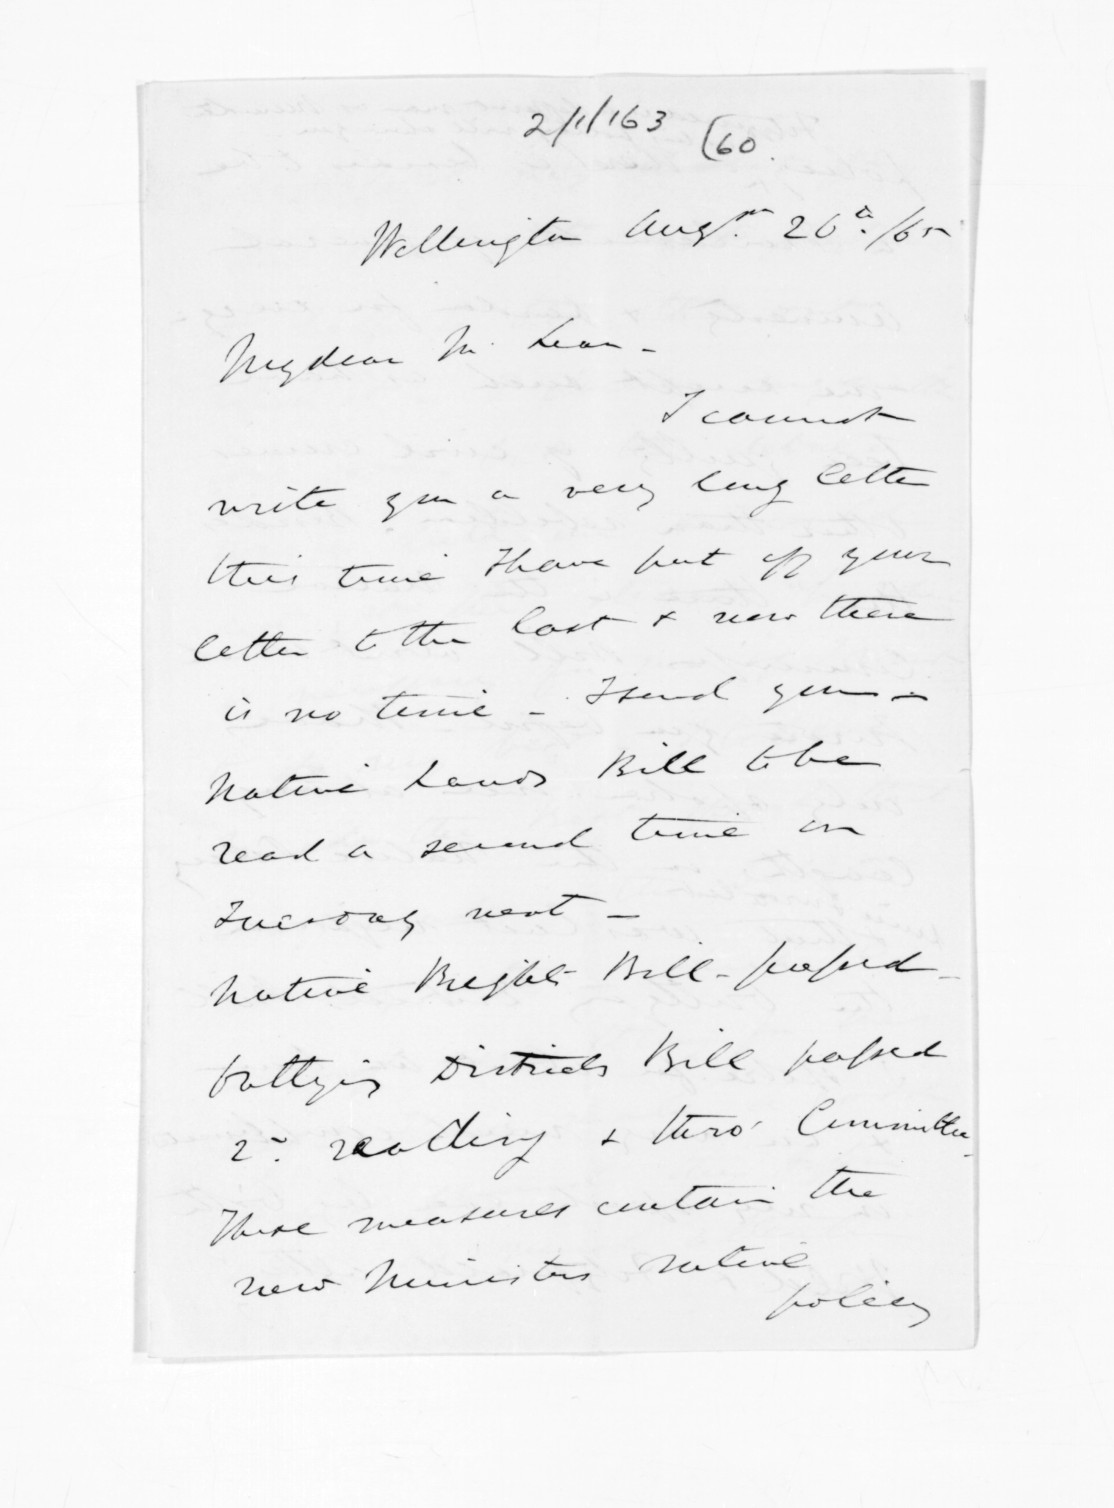 2/1/163 (60.
Wellington Augst. 26th. /65
My dear Mc Lean -
I cannot
write you a very long letter
this time I have put off your
letter to the last & now there
is no time - I send you -
Native Lands Bill to be
read a second time on
Tuesday next -
Native Rights Bill - passed -
Outlying Districts Bill passed
2d reading & thro' Committee.
These measures contain the
new Ministers native
policy